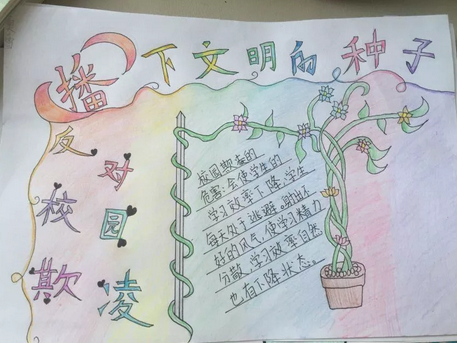 播下文明的种子
反对
校园
欺凌
校园欺凌的
危害:会使学生的
学习效率下降,学生
每天处于逃避。
好的风气,使学习精力
分散,学习效率自然
也有下降状态。